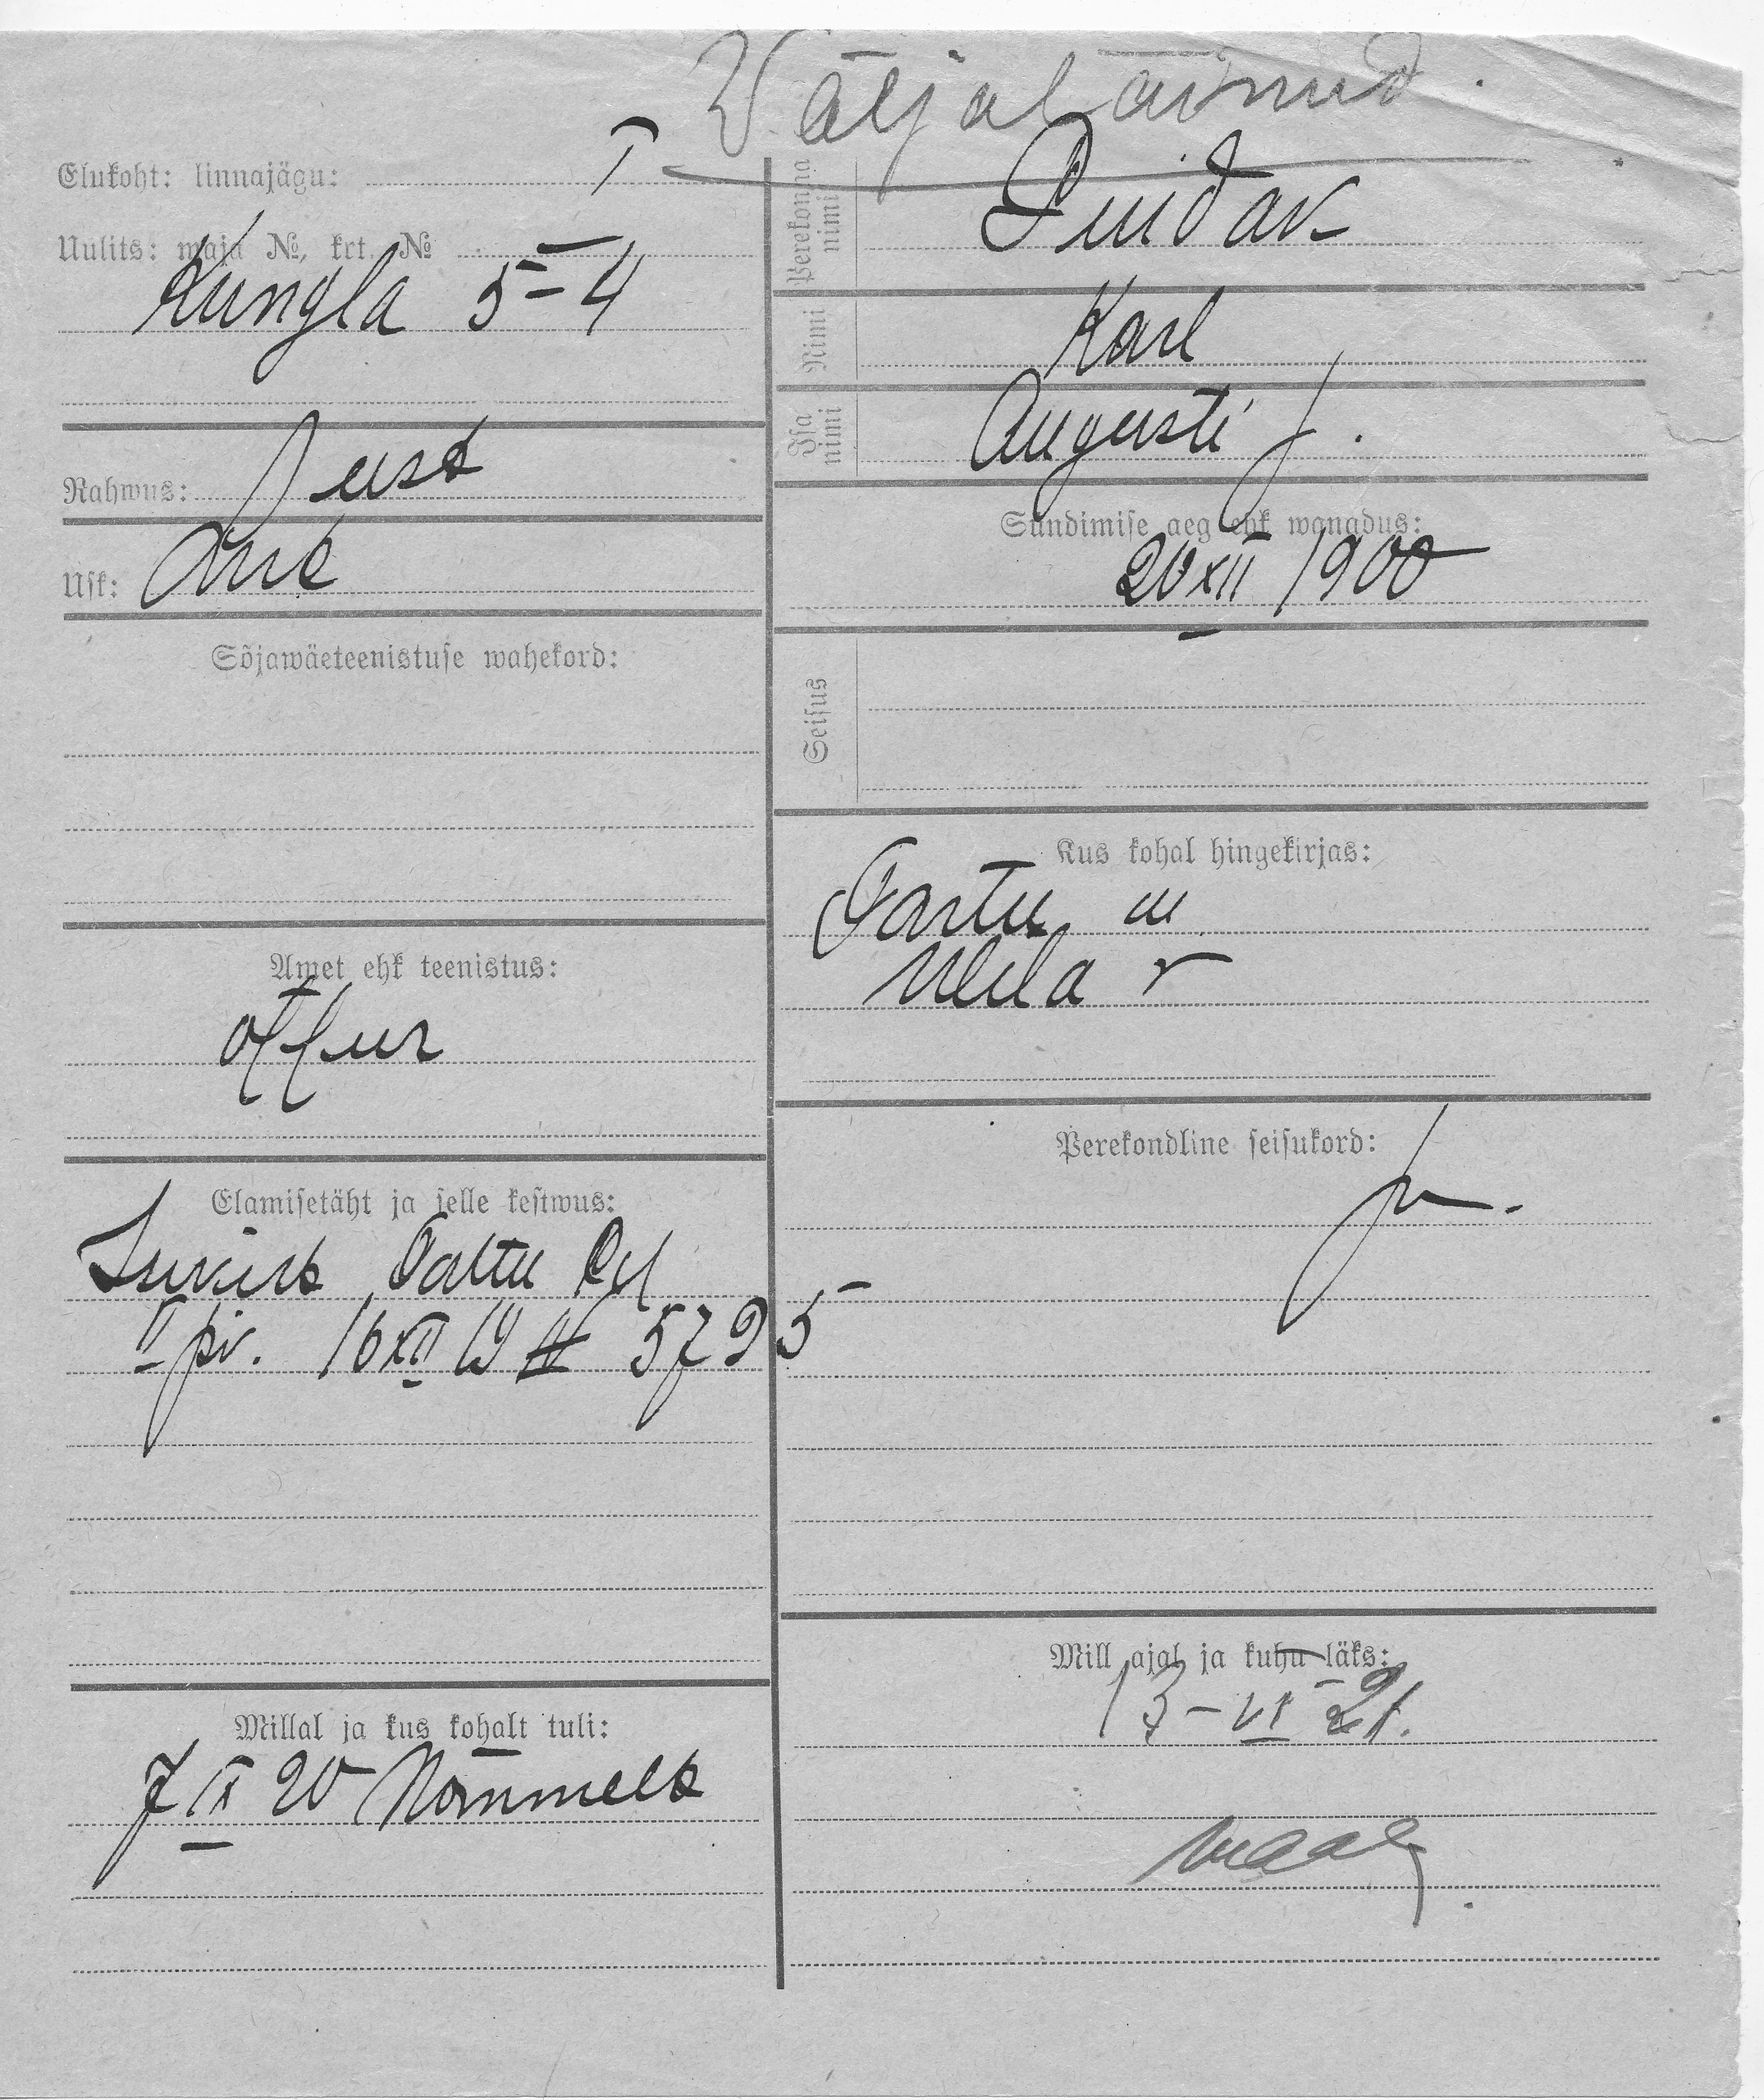 Wäljaläinud.
Elukoht: linnajägu: I
Uulits: maja №, krt. №
Kungla 5-4
Rahwus: eest
Usk: Lut
Sõjawäeteenistuse wahekord:
Amet ehk teenistus:
Elamisetäht ja selle kestwus:
Tartu
II 16 XII 19 № 5795
Millal ja kus kohalt tuli:
7 IX 20 Nõmmelt
Perekonna nimi Puidak
Nimi Karl
Isa nimi Augusti p.
Sündimise aeg ehk wanadus:
20 XII 1900
Seisus
Kus kohal hingekirjas:
Tartu m
Ulila v
Perekondline seisukord:
Mill ajal ja kuhu läks:
13-VI 21.